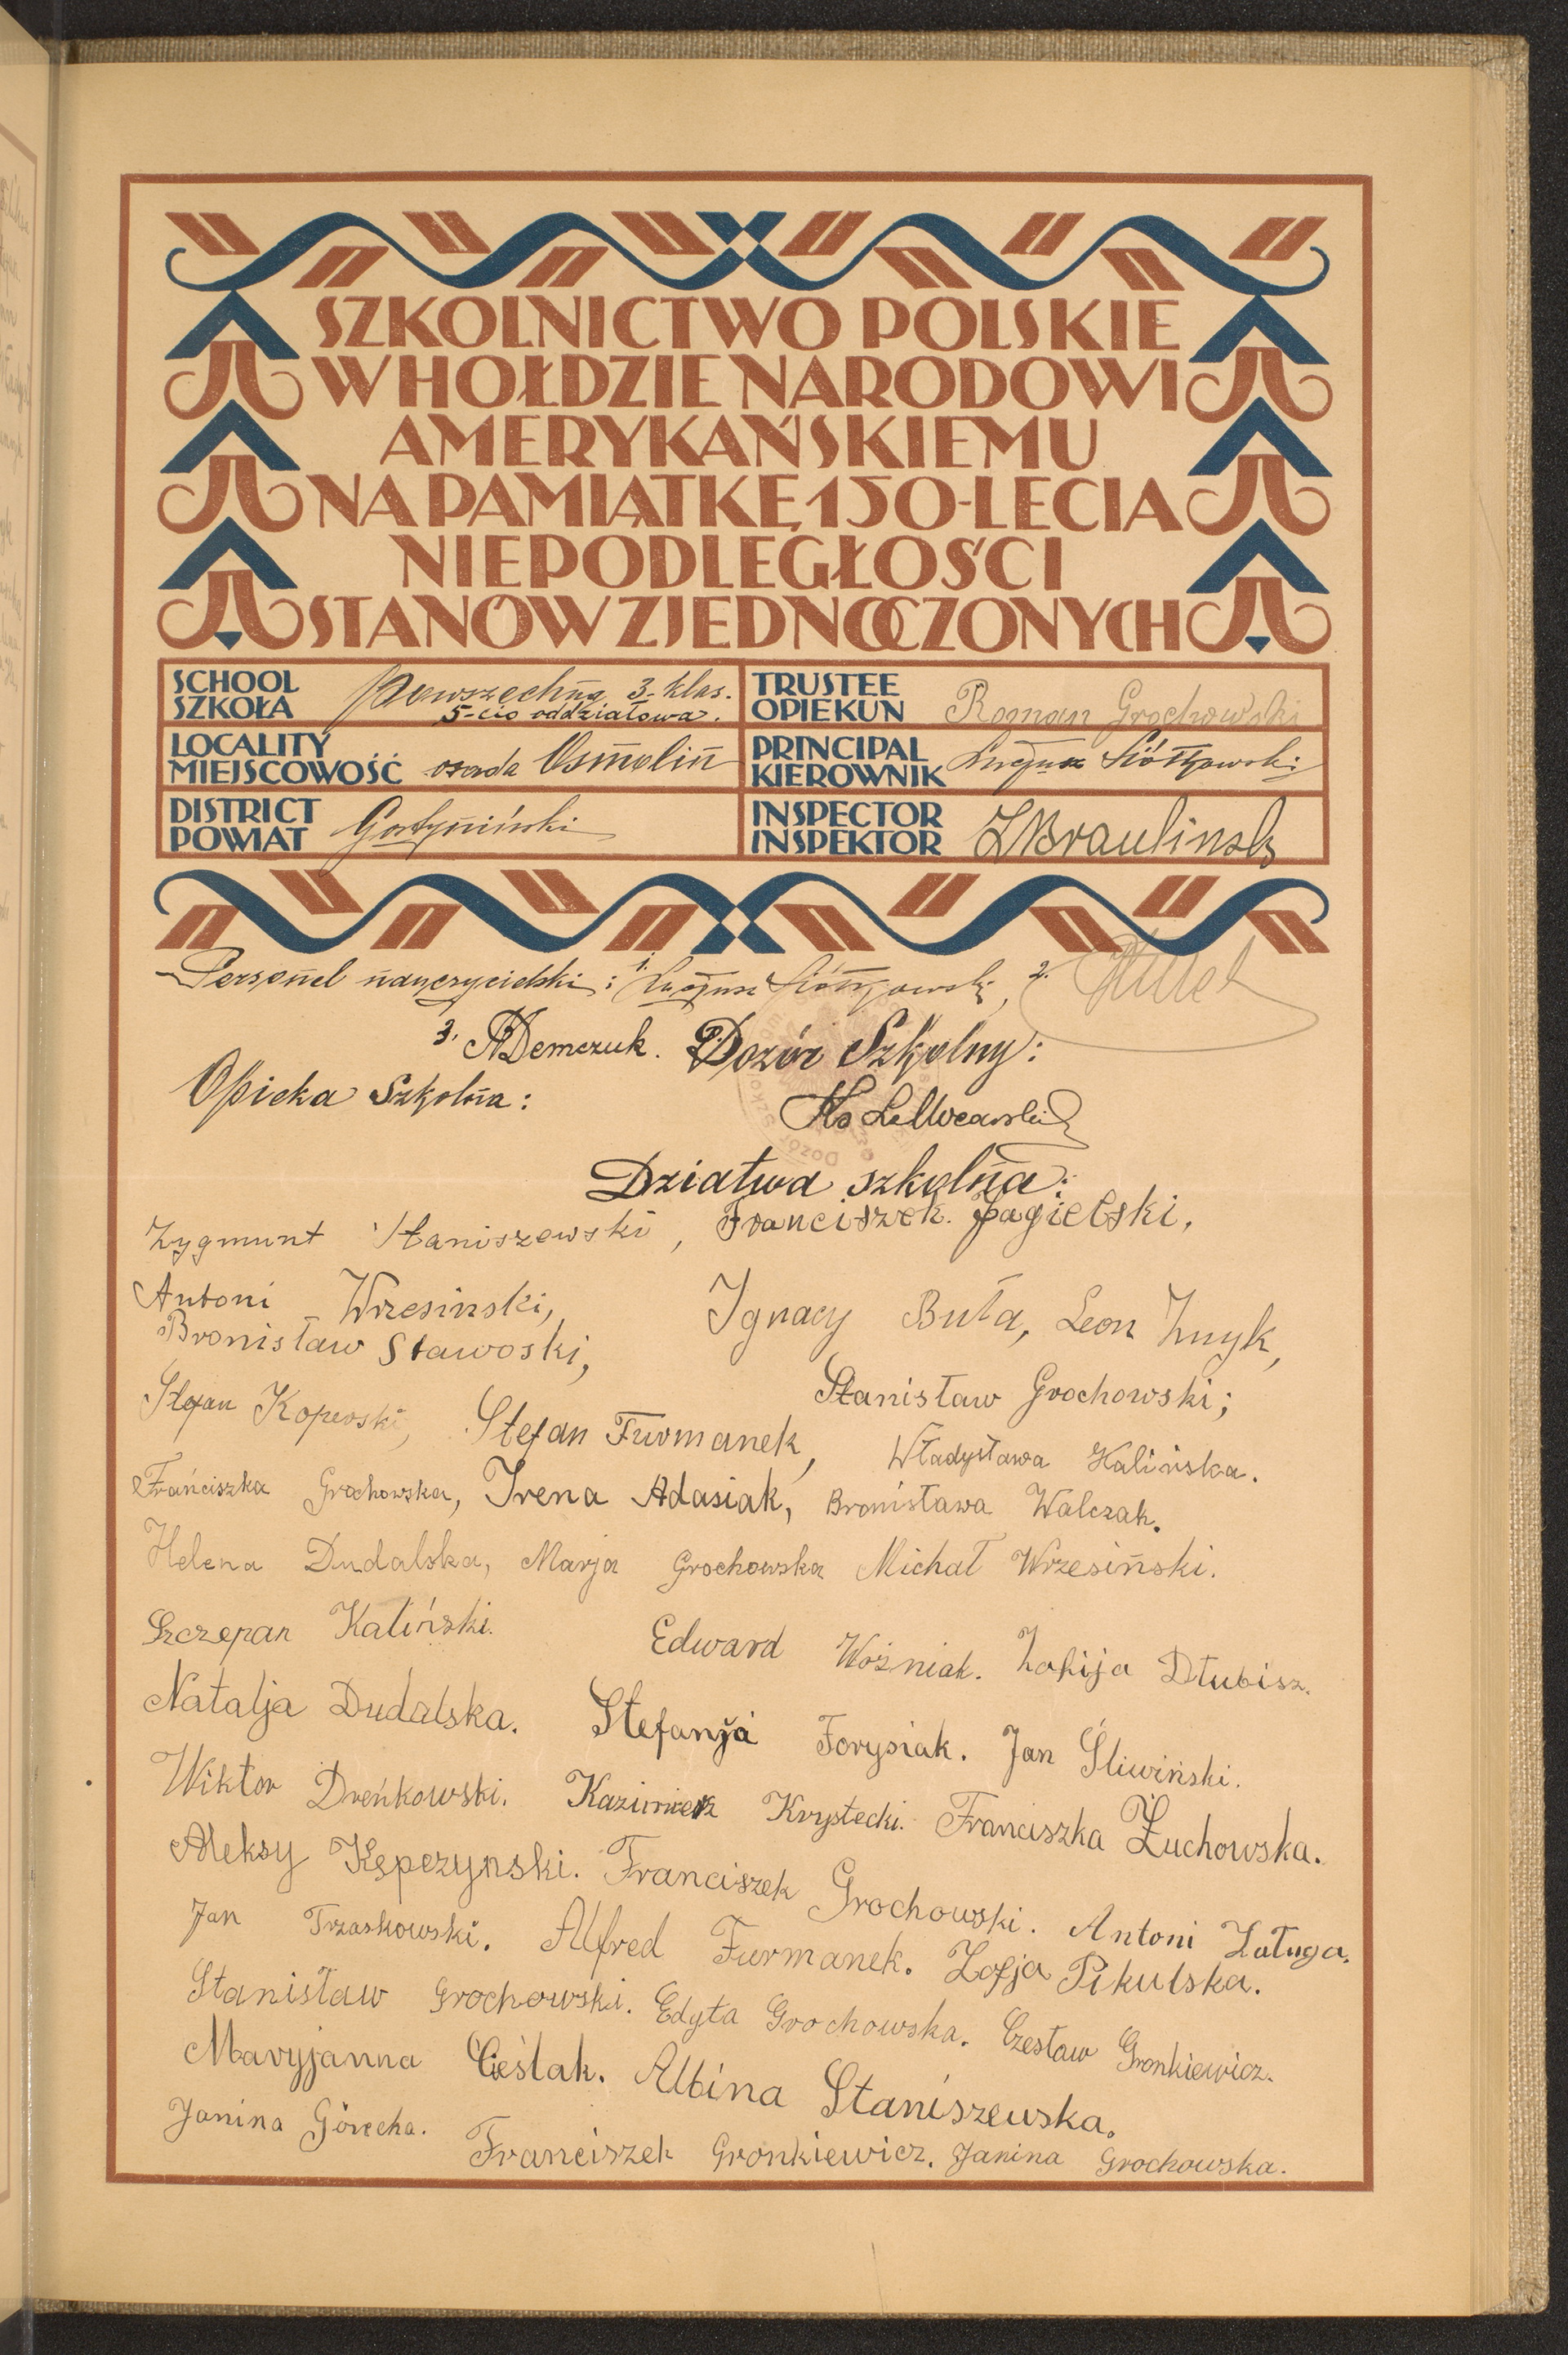 SZKOLNICTWO POLSKIE
W HOŁDZIE NARODOWI
AMERYKAŃSKIEMU
NA PAMIĄTKĘ 150-LECIA
NIEPODLEGŁOŚCI
STANÓW ZJEDNOCZONYCH
SCHOOL
SZKOŁA
Powszechna 3-klas.
5-cio oddziałowa.
TRUSTEE
OPIEKUN
Roman Grochowski
LOCALITY
MIEJSCOWOŚĆ
osada Osmolin
PRINCIPAL
KIEROWNIK
DISTRICT
POWIAT
Gostyniński
INSPECTOR
INSPEKTOR
Personel nauczycielski: 1. 2.
3. Demczuk. Dozór Szkolny:
Opieka Szkolna:
Dziatwa szkolna:
Zygmunt Staniszewski, Franciszek Jagielski,
Antoni Wrzesinski, Ignacy Buła, Leon Żuyk,
Bronisław Sławoski,
Stanisław Grochowski;
Stefan Kopewski, Stefan Furmanek, Władysława Kalińska.
Frańciszka Grochowska, Irena Adasiak, Bronisława Walczak.
Helena Dudalska, Marja Grochowska Michał Wrzesiński.
Szczepan Kaliński. Edward Woźniak. Zofija Dłubisz.
Natalja Dudalska. Stefanja Forysiak. Jan Śliwiński.
Wiktor Dreńkowski. Kazimierz Krystecki. Franciszka Żuchowska.
Aleksy Kępczynski. Franciszek Grochowski. Antoni Załuga.
Jan Trzaskowski. Alfred Furmanek. Zofja Pikulska.
Stanisław Grochowski. Edyta Grochowska. Czesław Gronkiewicz.
Maryjanna Cieślak. Albina Staniszewska.
Janina Górecka. Franciszek Gronkiewicz. Janina Grochowska.